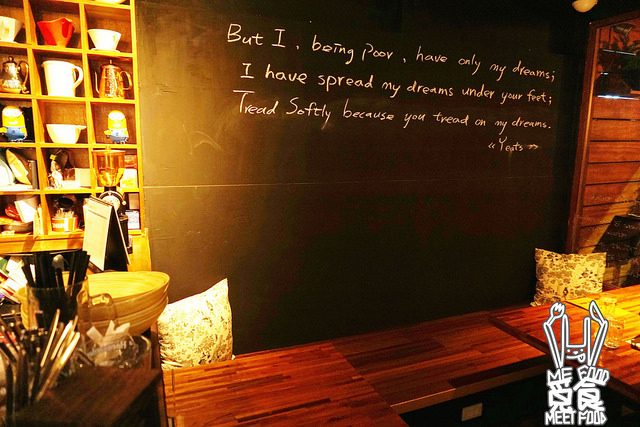 But I, being poor, have only my dreams;
I have spread my dreams under your feet;
Tread Softly because you tread on my dreams.
«Yeats»
ME FOOD
食
MEET FOOD